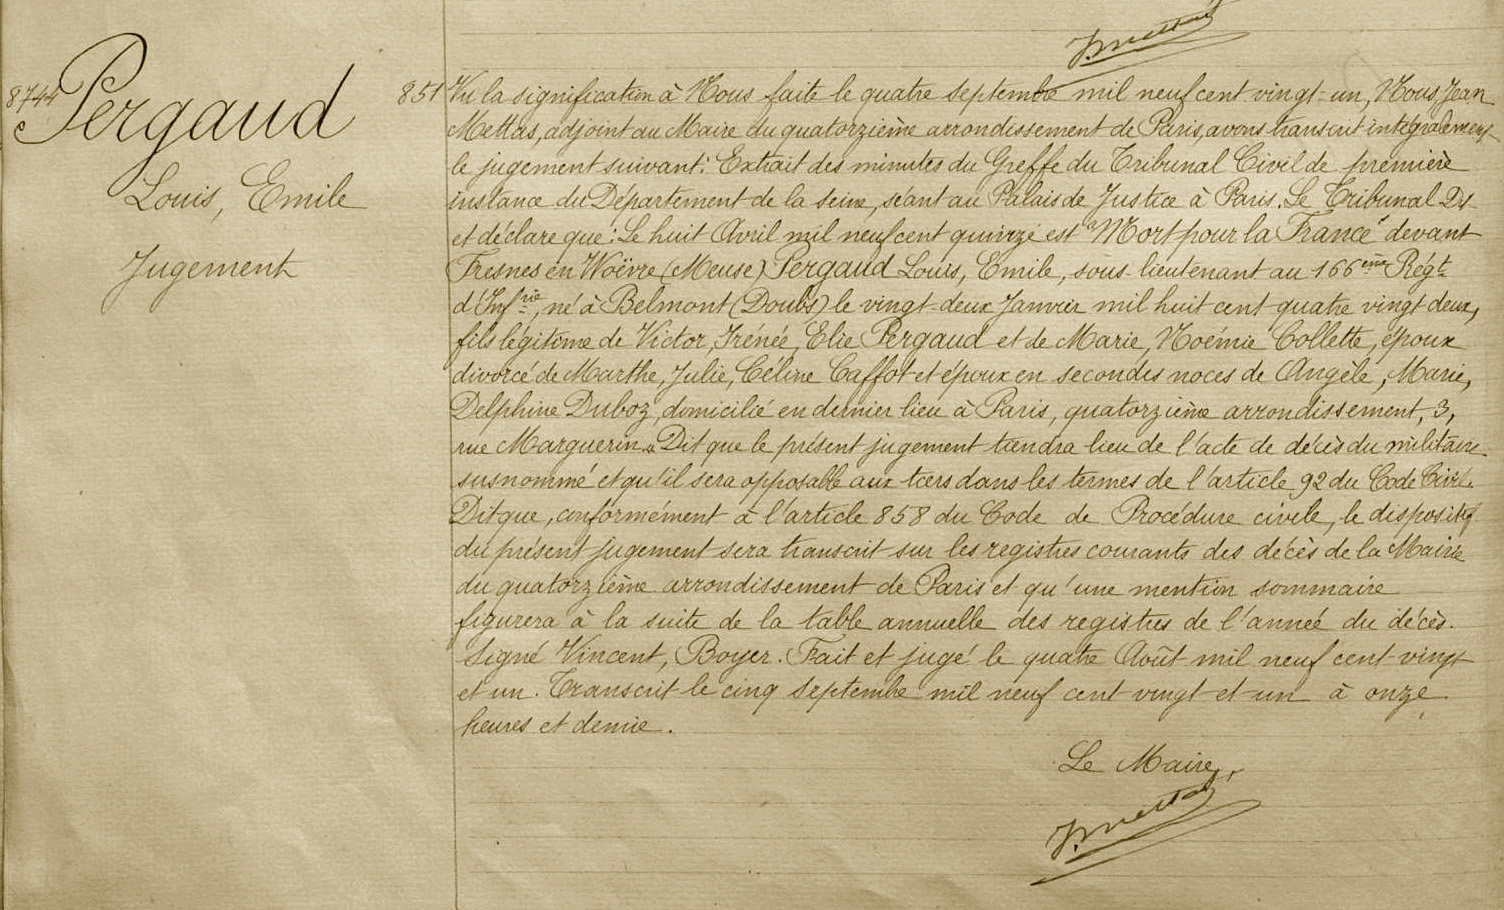 J. Mettas
8744
Pergaud
Louis, Emile
Jugement
851
Vu la signification à Nous faite le quatre septembre mil neuf cent vingt-un, Nous Jean
Mettas, adjoint au Maire du quatorzième arrondissement de Paris, avons transcrit intégralement
le jugement suivant: Extrait des minutes du Greffe du Tribunal Civil de première
instance du Département de la seine, séant au Palais de Justice à Paris. Le Tribunal Dit
et déclare que: Le huit Avril mil neuf cent quinze est "Mort pour la France" devant
Fresnes en Woëvre (Meuse) Pergaud Louis, Emile, sous-lieutenant au 166ème Régt
d'Infrie, né à Belmont (Doubs) le vingt-deux Janvier mil huit cent quatre vingt deux,
fils légitime de Victor, Irénée, Elie Pergaud et de Marie, Noémie Collette, époux
divorcé de Marthe, Julie, Céline Caffot et époux en secondes noces de Angèle, Marie,
Delphine Duboz, domicilié en dernier lieu à Paris, quatorzième arrondissement, 3,
rue Marguerin. Dit que le présent jugement tiendra lieu de l'acte de décès du militaire
susnommé et qu'il sera opposable aux tiers dans les termes de l'article 92 du Code Civil.
Dit que, conformément à l'article 858 du Code de Procédure civile, le dispositif
du présent jugement sera transcrit sur les registres courants des décès de la Mairie
du quatorzième arrondissement de Paris et qu'une mention sommaire
figurera à la suite de la table annuelle des registres de l'année du décès.
Signé Vincent, Boyer. Fait et jugé le quatre Août mil neuf cent vingt
et un. Transcrit le cinq septembre mil neuf cent vingt et un à onze
heures et demie.
Le Maire,
J. Mettas